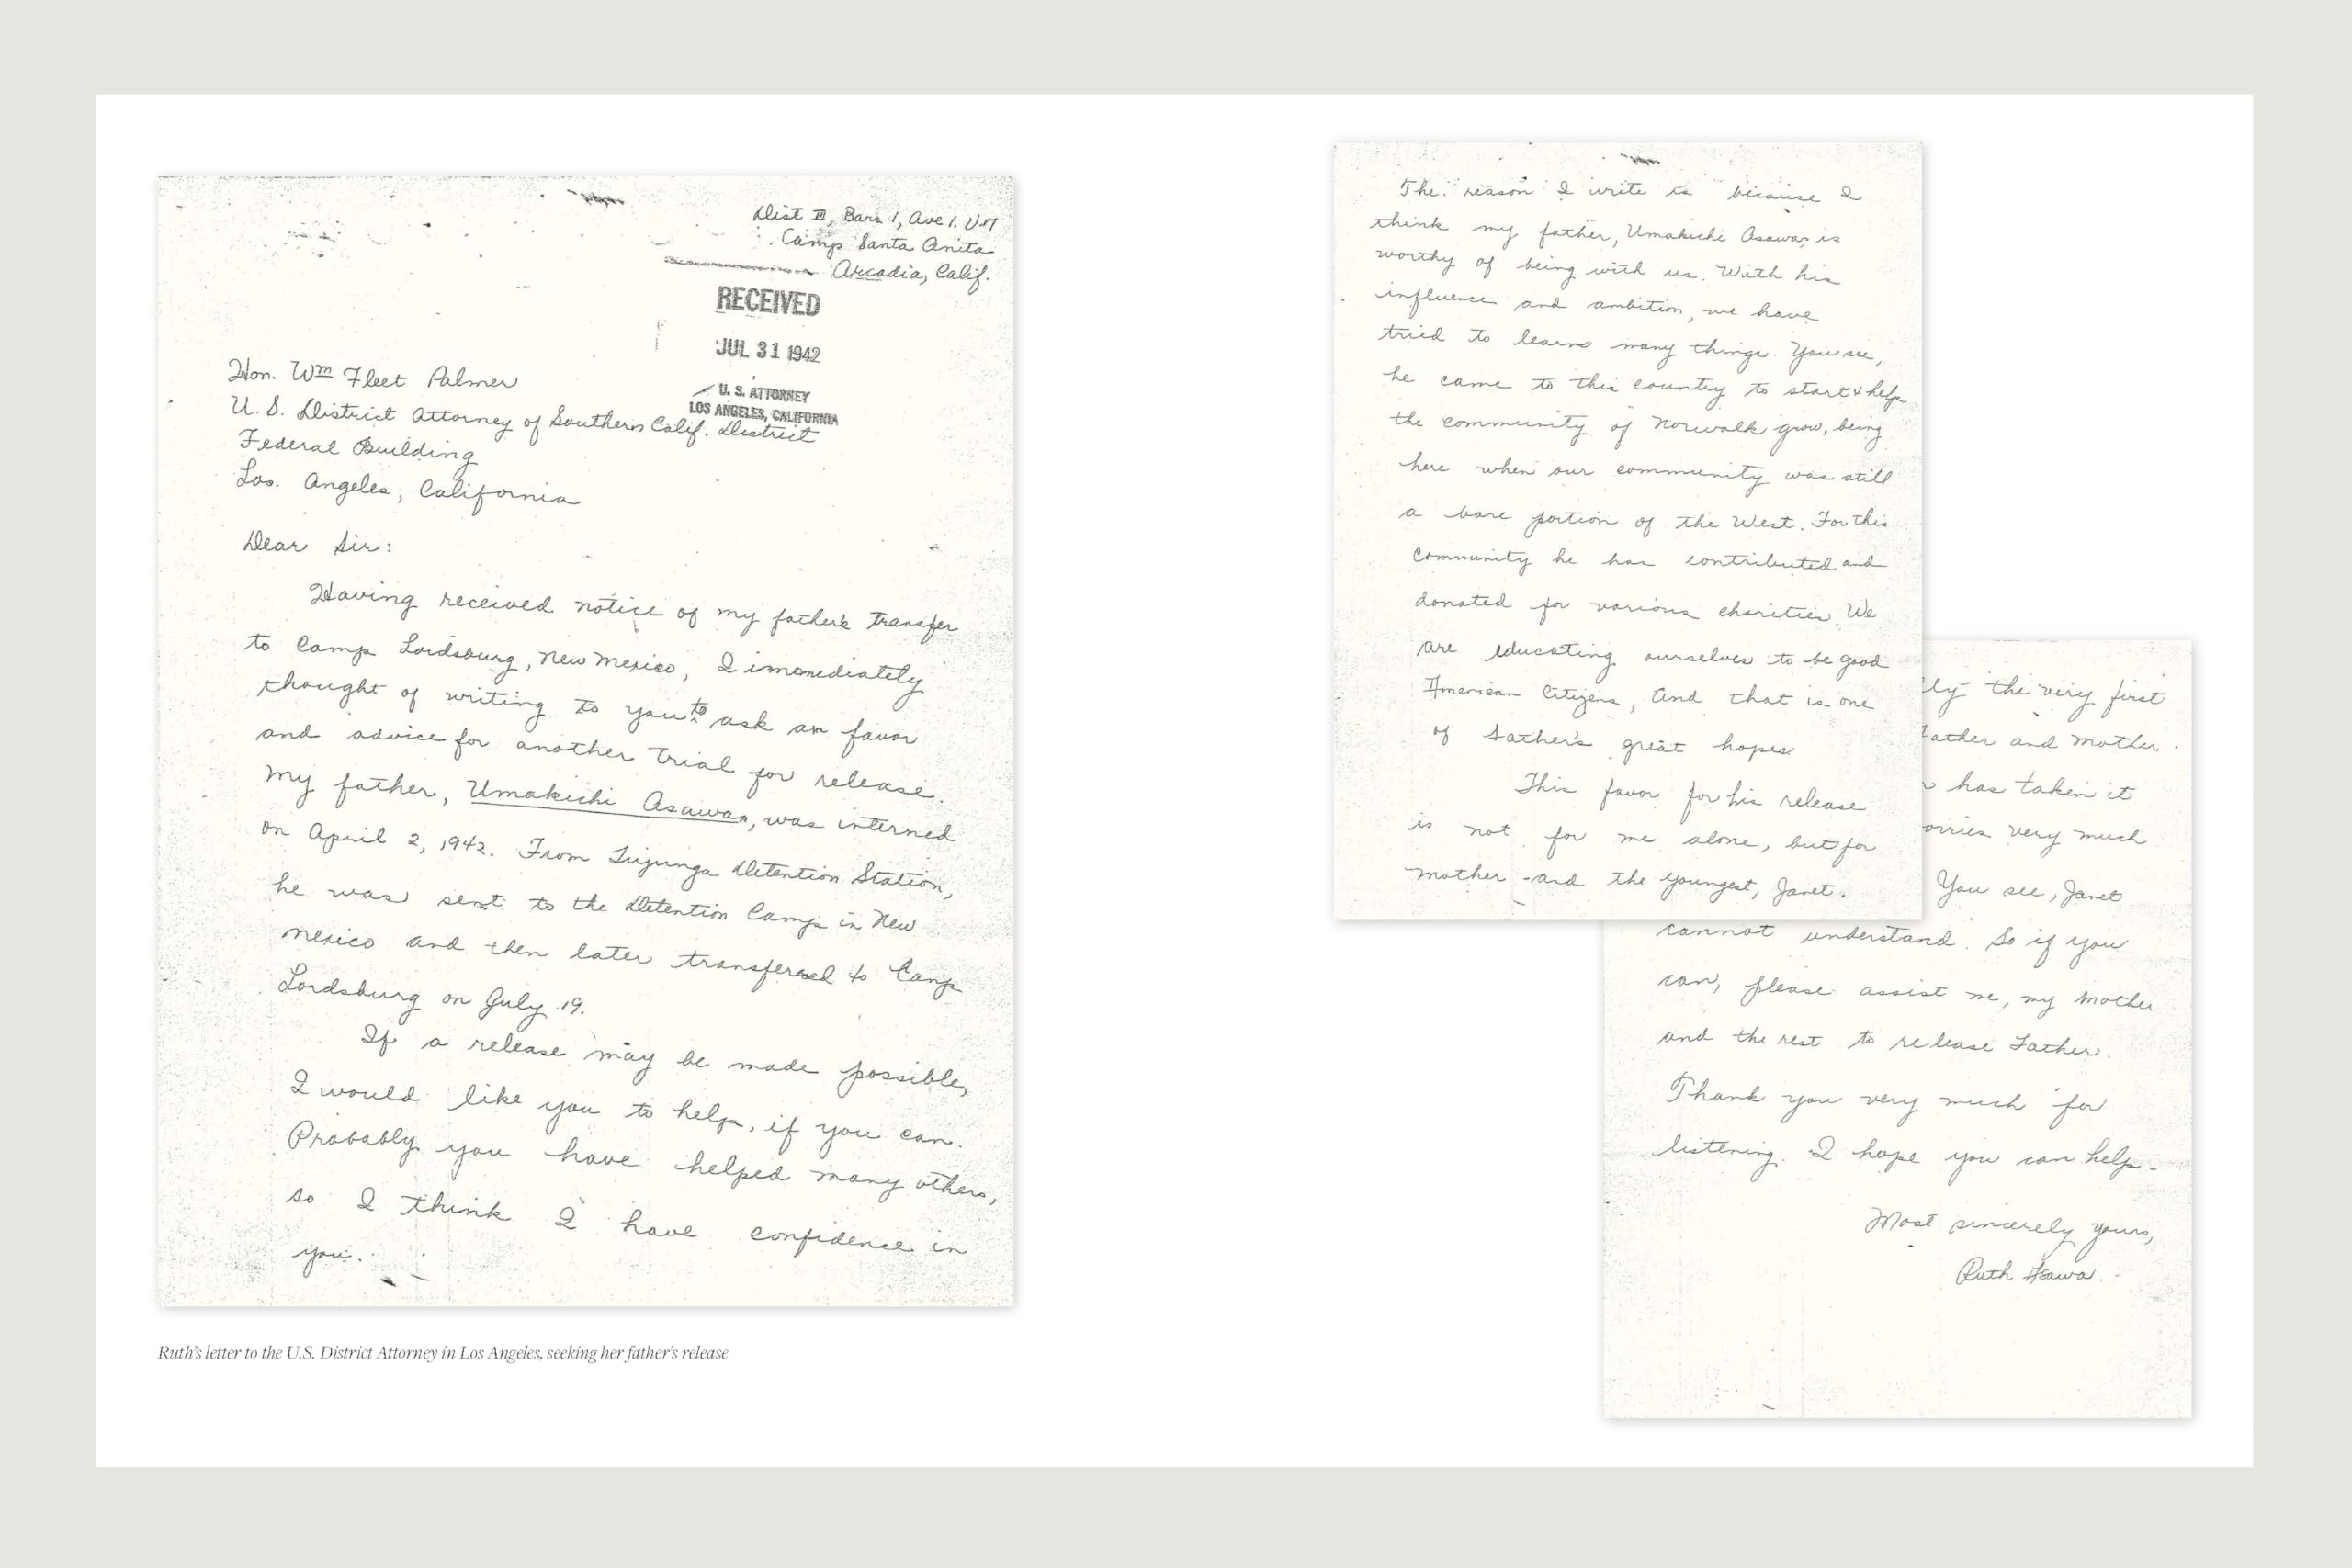 Dist III, Bar. 1, Ave 1. U7
Camp Santa Anita
Arcadia, Calif.
RECEIVED
JUL 31 1942
U. S. ATTORNEY
LOS ANGELES, CALIFORNIA
Hon. Wm Fleet Palmer
U. S. District Attorney of Southern Calif. District
Federal Building
Los. Angeles, California
Dear Sir:
Having received notice of my father's transfer
to Camp Lordsburg, New Mexico, I immediately
thought of writing to you to ask a favor
and advice for another trial for release.
My father, Umakichi Asawa, was interned
on April 2, 1942. From Tujunga Detention Station,
he was sent to the Detention Camp in New
Mexico and then later transfered to Camp
Lordsburg on July 19.
If a release may be made possible,
I would like you to help, if you can.
Probably you have helped many others,
so I think I have confidence in
you.
Ruth's letter to the U.S. District Attorney in Los Angeles, seeking her father's release
The reason I write is because I
think my father, Umakichi Asawa, is
worthy of being with us. With his
influence and ambition, we have
tried to learn many things. You see,
he came to this country to start & help
the community of Norwalk grow, being
here when our community was still
a bare portion of the West. For this
community he has contributed and
donated for various charities. We
are educating ourselves to be good
American Citizens, And that is one
of Father's great hopes.
This favor for his release
is not for me alone, but for
mother and the youngest, Janet.
the very first
Father and Mother.
has taken it
very much
You see, Janet
cannot understand. So if you
can, please assist me, my Mother
and the rest to release Father.
Thank you very much for
listening. I hope you can help-
Most sincerely yours,
Ruth Asawa.